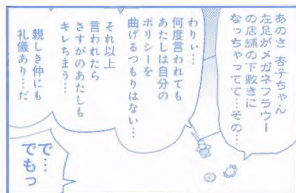 あのさ 杏子ちゃん
左足がメガネフラワー
の店舗の下敷きに
なっちゃってて…その…
わりぃ…
何度言われても
あたしは自分の
ポリシーを
曲げるつもりはない…
それ以上
言われたら
さすがのあたしも
キレちまう…
親しき仲にも
礼儀あり…だ
で…
でもっ